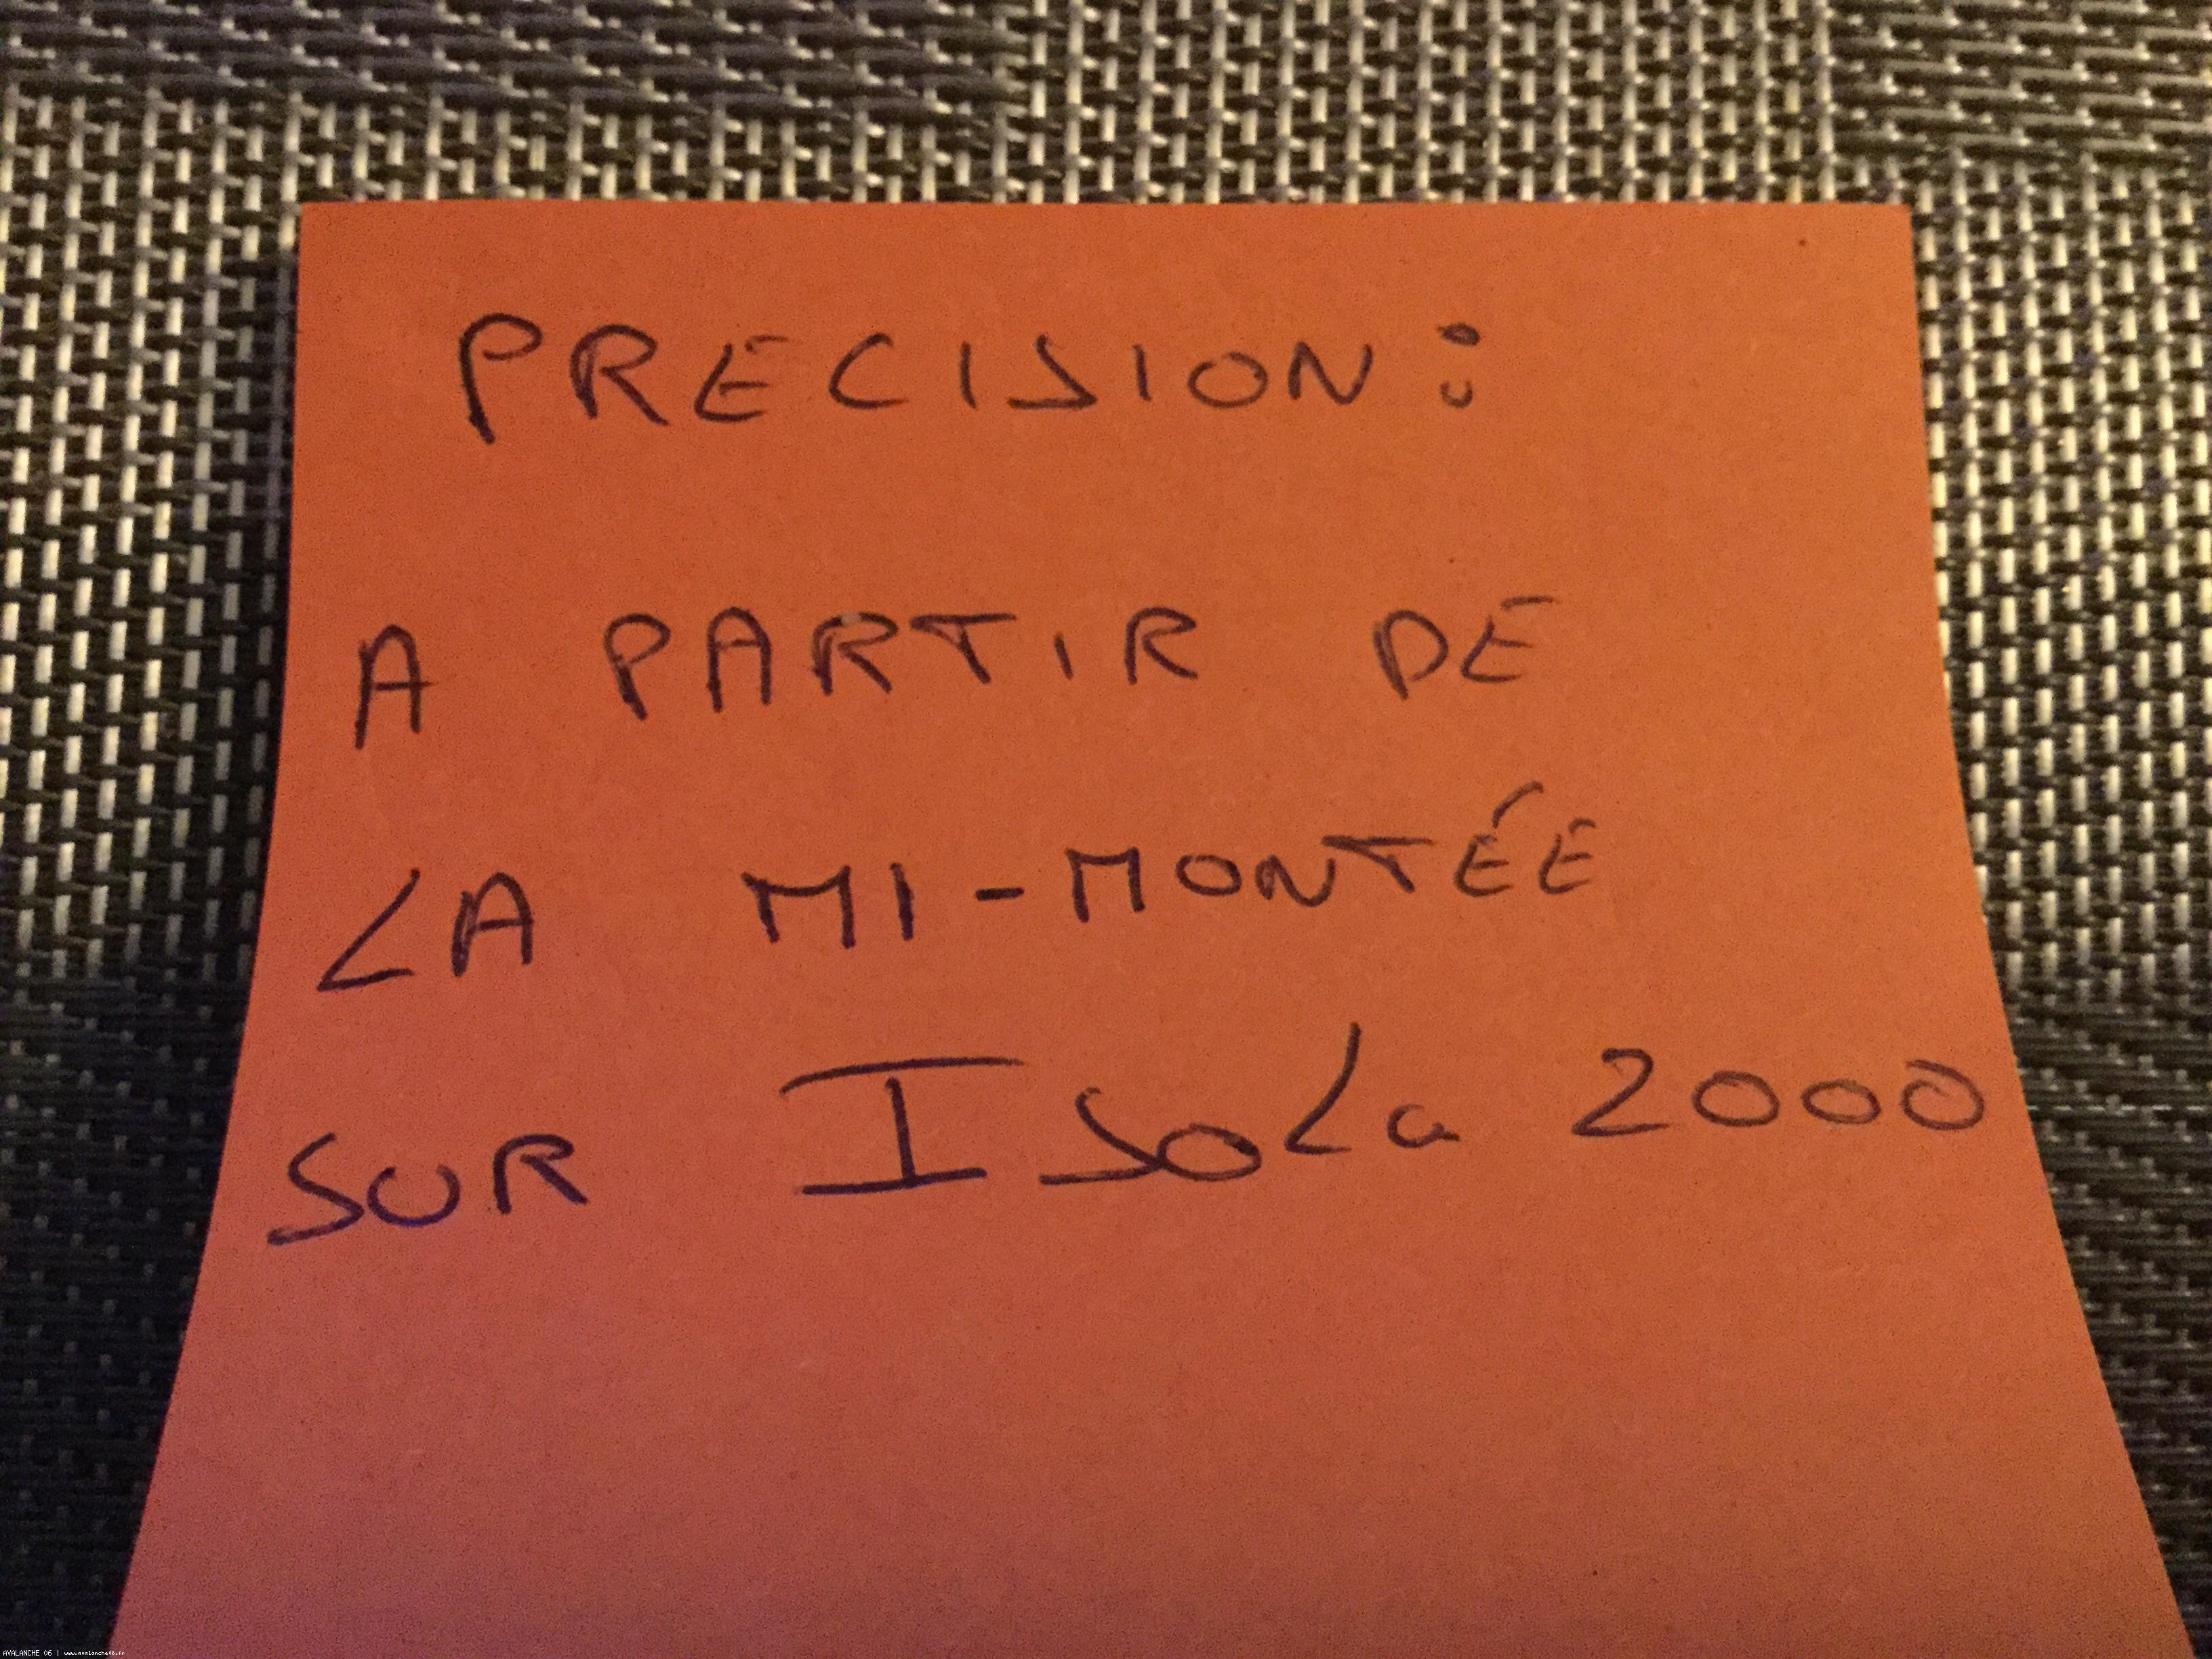 PRECISION:
A PARTIR DE
LA MI-MONTÉE
SUR ISOLa 2000
AVALANCHE 06 | www.avalanche06.fr